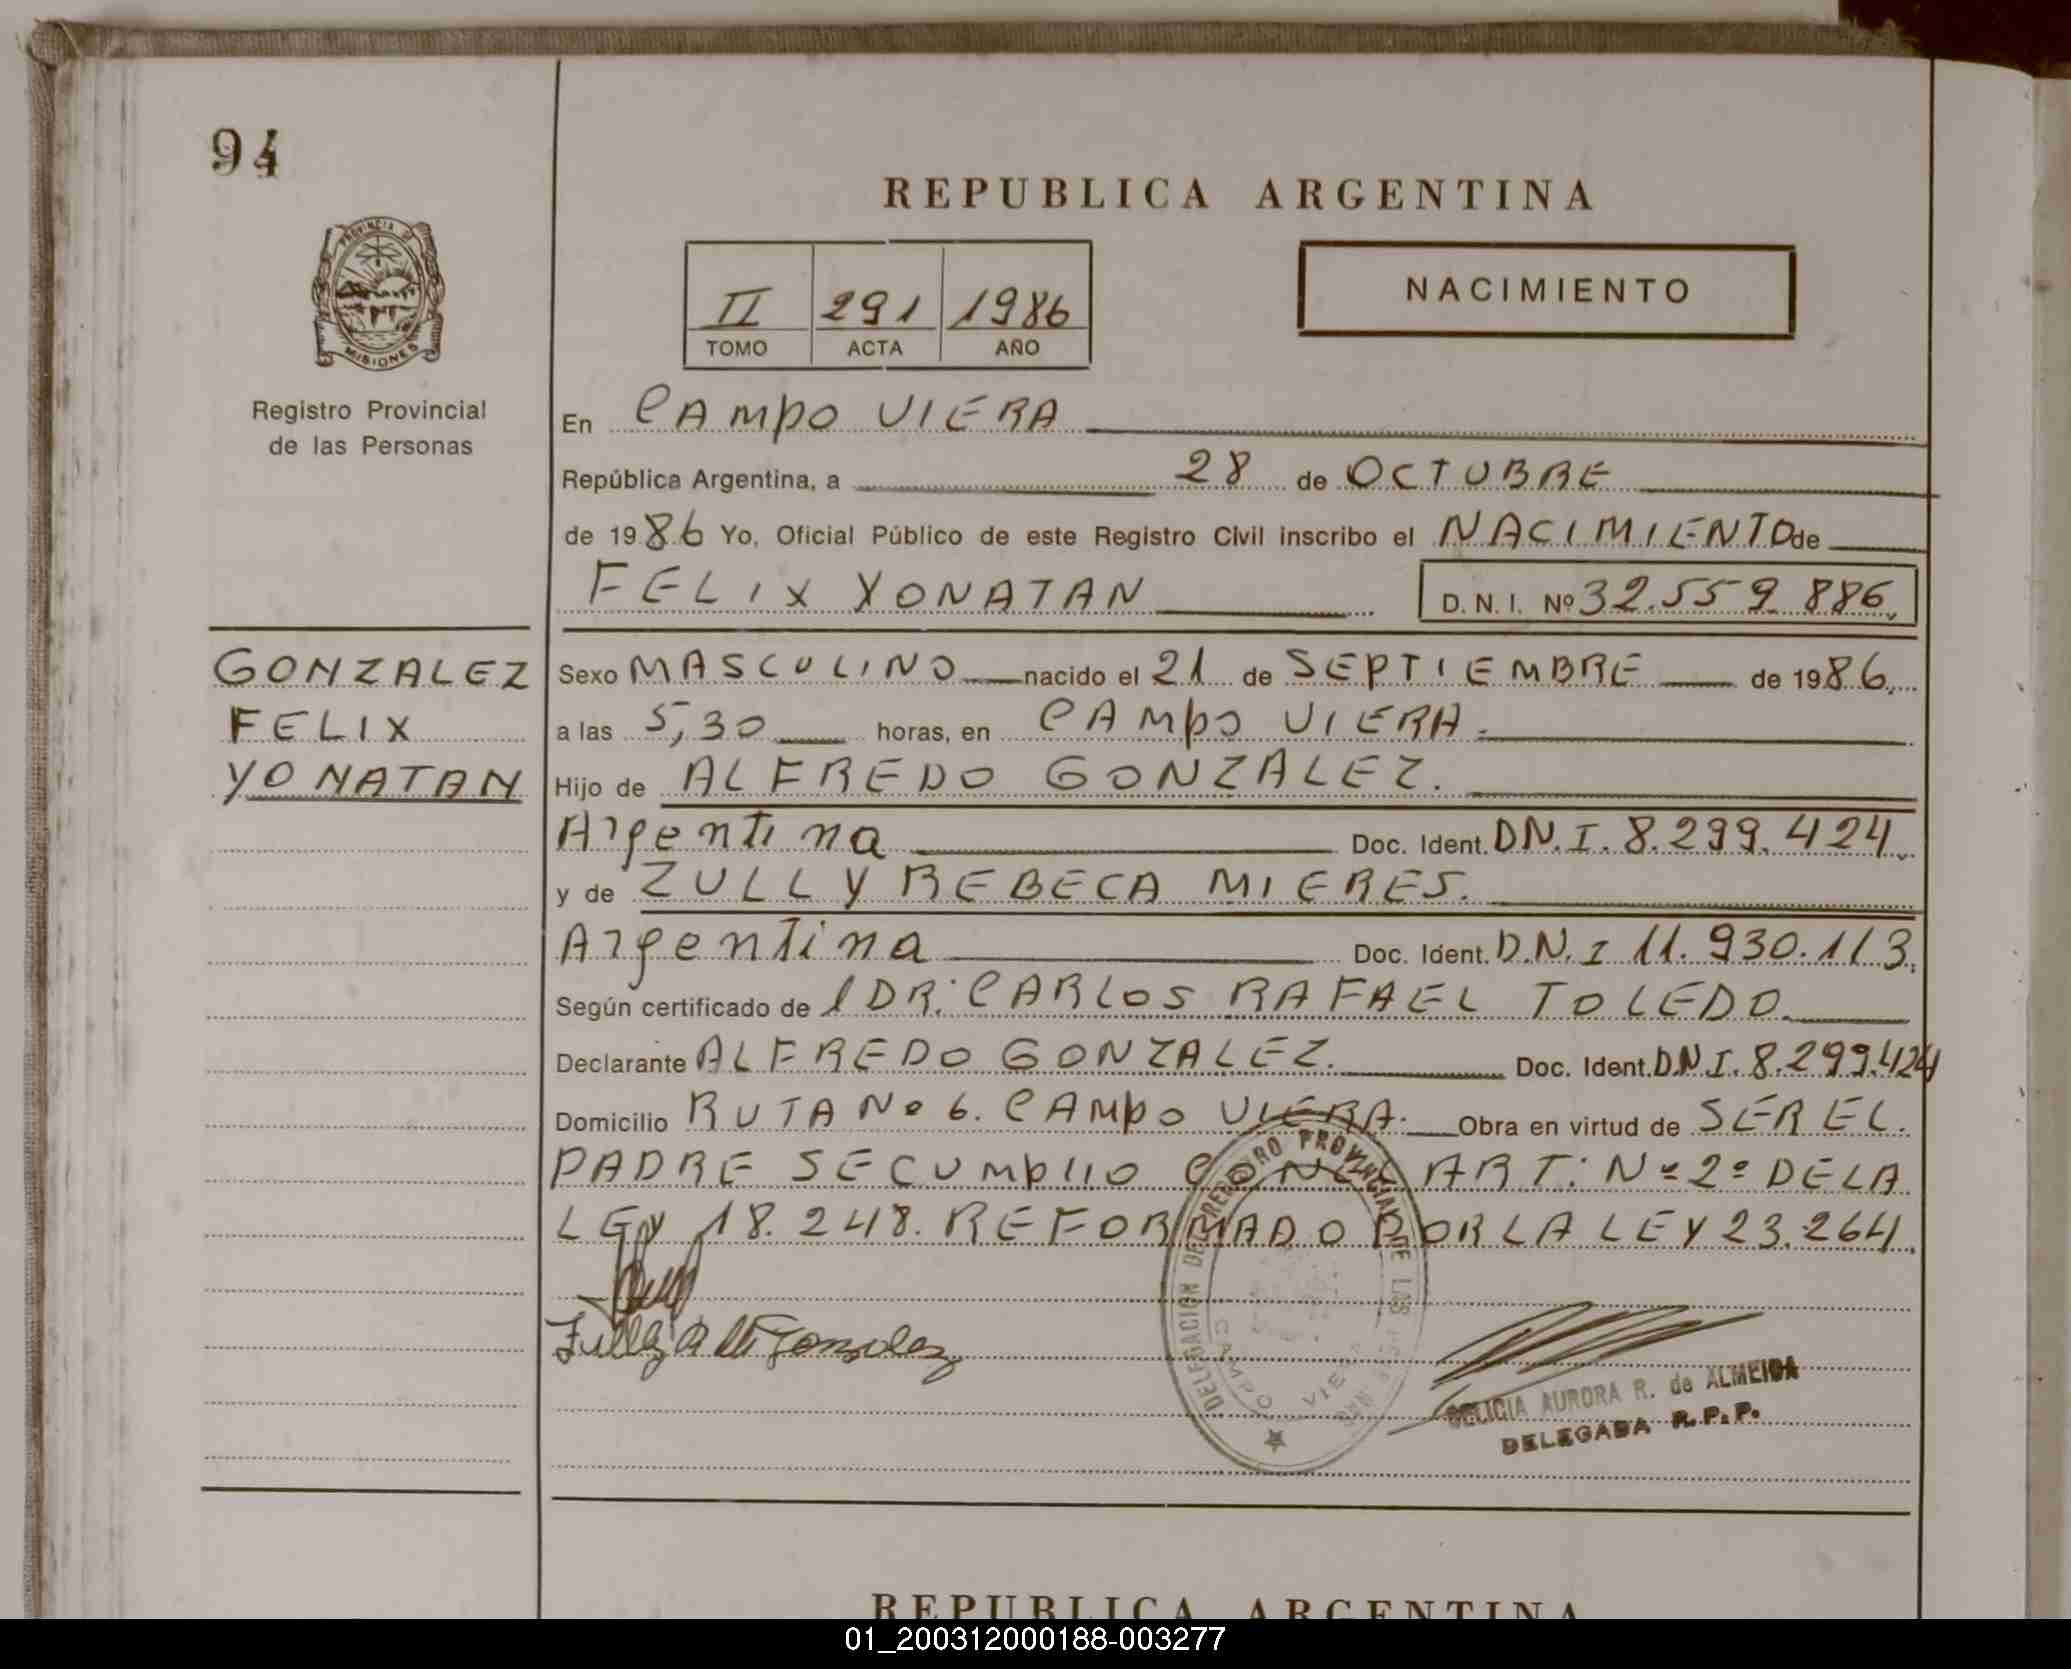 94
REPUBLICA ARGENTINA
PROVINCIA DE
MISIONES
NACIMIENTO
II 291 1986
TOMO ACTA AÑO
Registro Provincial
de las Personas
En CAMPO VIERA
República Argentina, a 28 de OCTUBRE
de 1986 Yo, Oficial Público de este Registro Civil inscribo el NACIMIENTO de
FELIX YONATAN D.N.I. Nº 32.559.886.
GONZALEZ
FELIX
YONATAN
Sexo MASCULINO nacido el 21 de SEPTIEMBRE de 1986.
a las 5,30 horas, en CAMPO VIERA.
Hijo de ALFREDO GONZALEZ.
Argentina Doc. Ident. DN.I. 8.299.424.
y de ZULLY REBECA MIERES.
Argentina Doc. Ident. D.N.I 11.930.113.
Según certificado de DR. CARLOS RAFAEL TOLEDO.
Declarante ALFREDO GONZALEZ. Doc. Ident. D.N.I. 8.299.424
Domicilio RUTA Nº 6. CAMPO VIERA. Obra en virtud de SER EL.
PADRE SE CUMPLIO CON EL ART: Nº 2º DE LA
LEY 18.248. REFORMADO POR LA LEY 23.264.
DELEGACION DEL REGISTRO PROVINCIAL DE LAS
CAMPO VIERA
DELICIA AURORA R. de ALMEIDA
DELEGADA R.P.P.
REPUBLICA ARGENTINA
01_200312000188-003277